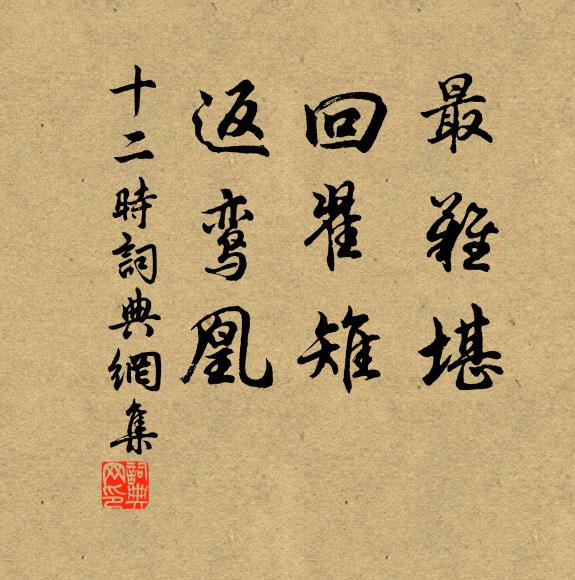 最難堪
回翟雉
返鸾凰
十二時詞典網集
詞典网印